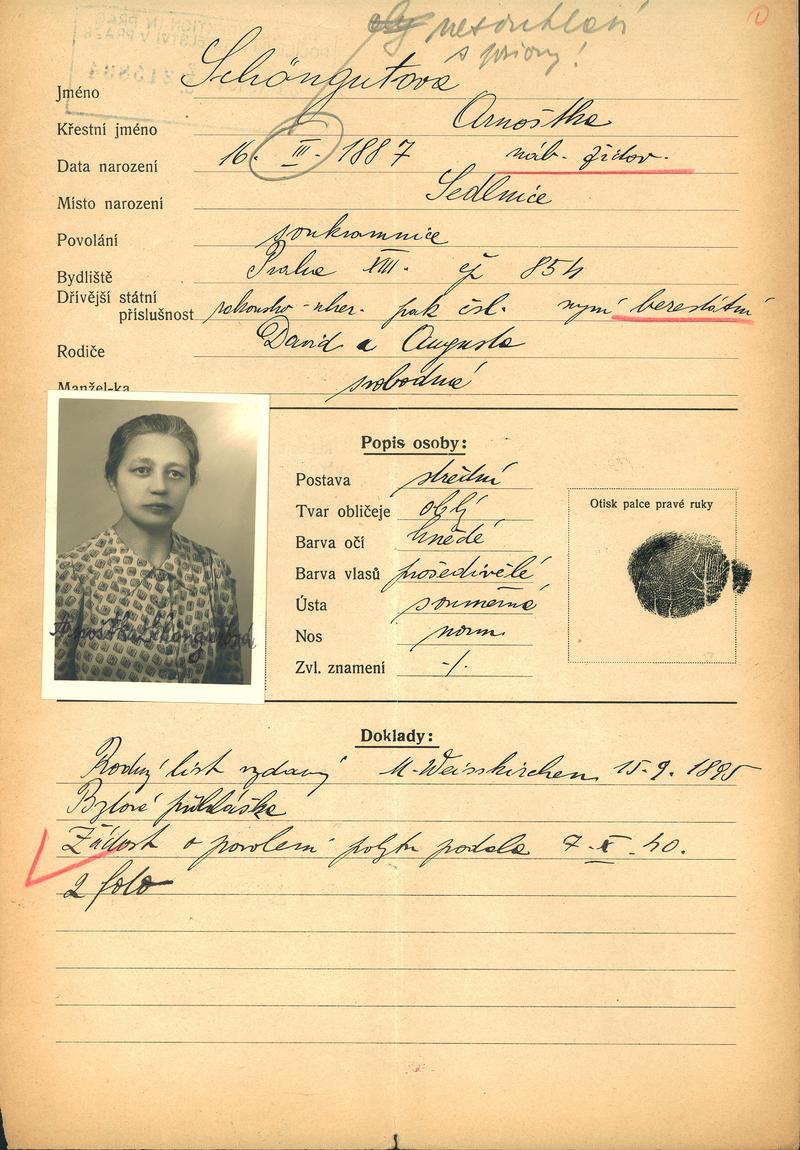 nesouhlasí
s
Jméno Schöngutova
Křestní jméno Arnoštka
Data narození 16. III. 1887 náb. židov.
Místo narození Sedlnice
Povolání soukromnice
Bydliště Praha XIII. čp 854
Dřívější státní
příslušnost rakousko-uher. pak čsl. nyní bezestátní
Rodiče David a Augusta
Manžel-ka svobodná
Popis osoby:
Postava střední
Tvar obličeje oblý
Barva očí hnědé
Barva vlasů prošedivělé
Ústa souměrná
Nos norm
Zvl. znamení -/.
Otisk palce pravé ruky
Arnoštka Schöngutová
Doklady:
Rodný list vydaný M-Weisskirchen 15.9.1895
Bytová přihláška
Žádost o povolení pobytu podala 7.X.40.
2 foto